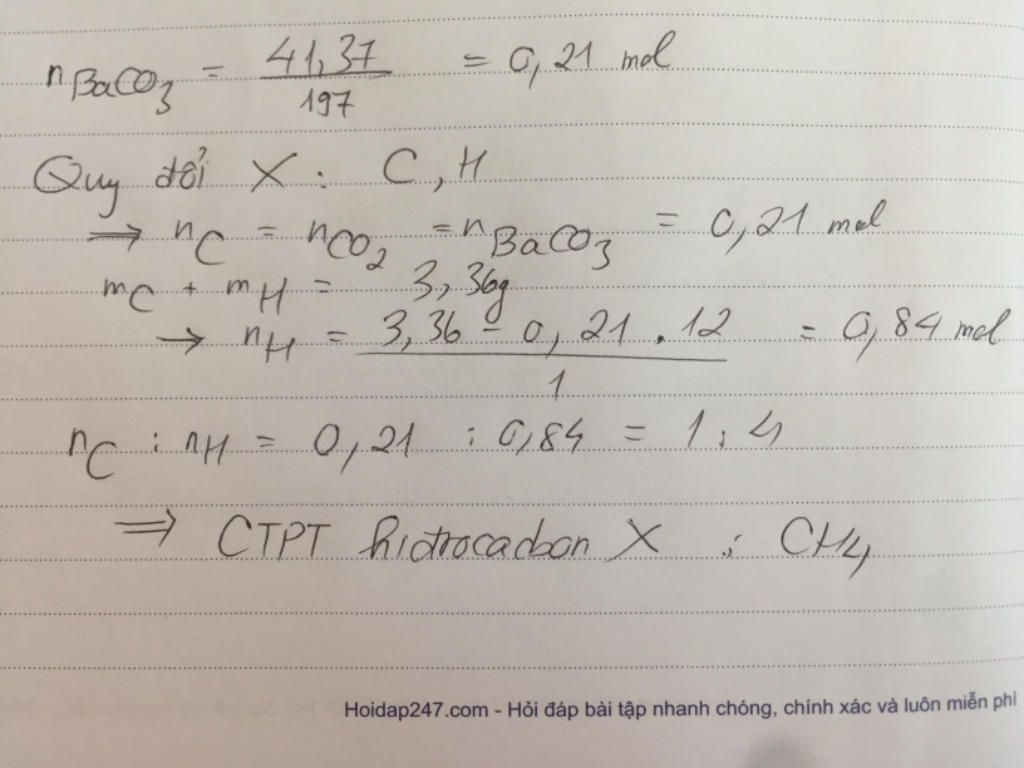 nBaCO3 = 41,37 / 197 = 0,21 mol
Quy đổi X : C, H
⇒ nC = nCO2 = nBaCO3 = 0,21 mol
mC + mH = 3,36g
→ nH = 3,36 - 0,21 . 12 / 1 = 0,84 mol
nC : nH = 0,21 : 0,84 = 1 : 4
⇒ CTPT hidrocacbon X : CH4
Hoidap247.com - Hỏi đáp bài tập nhanh chóng, chính xác và luôn miễn phí